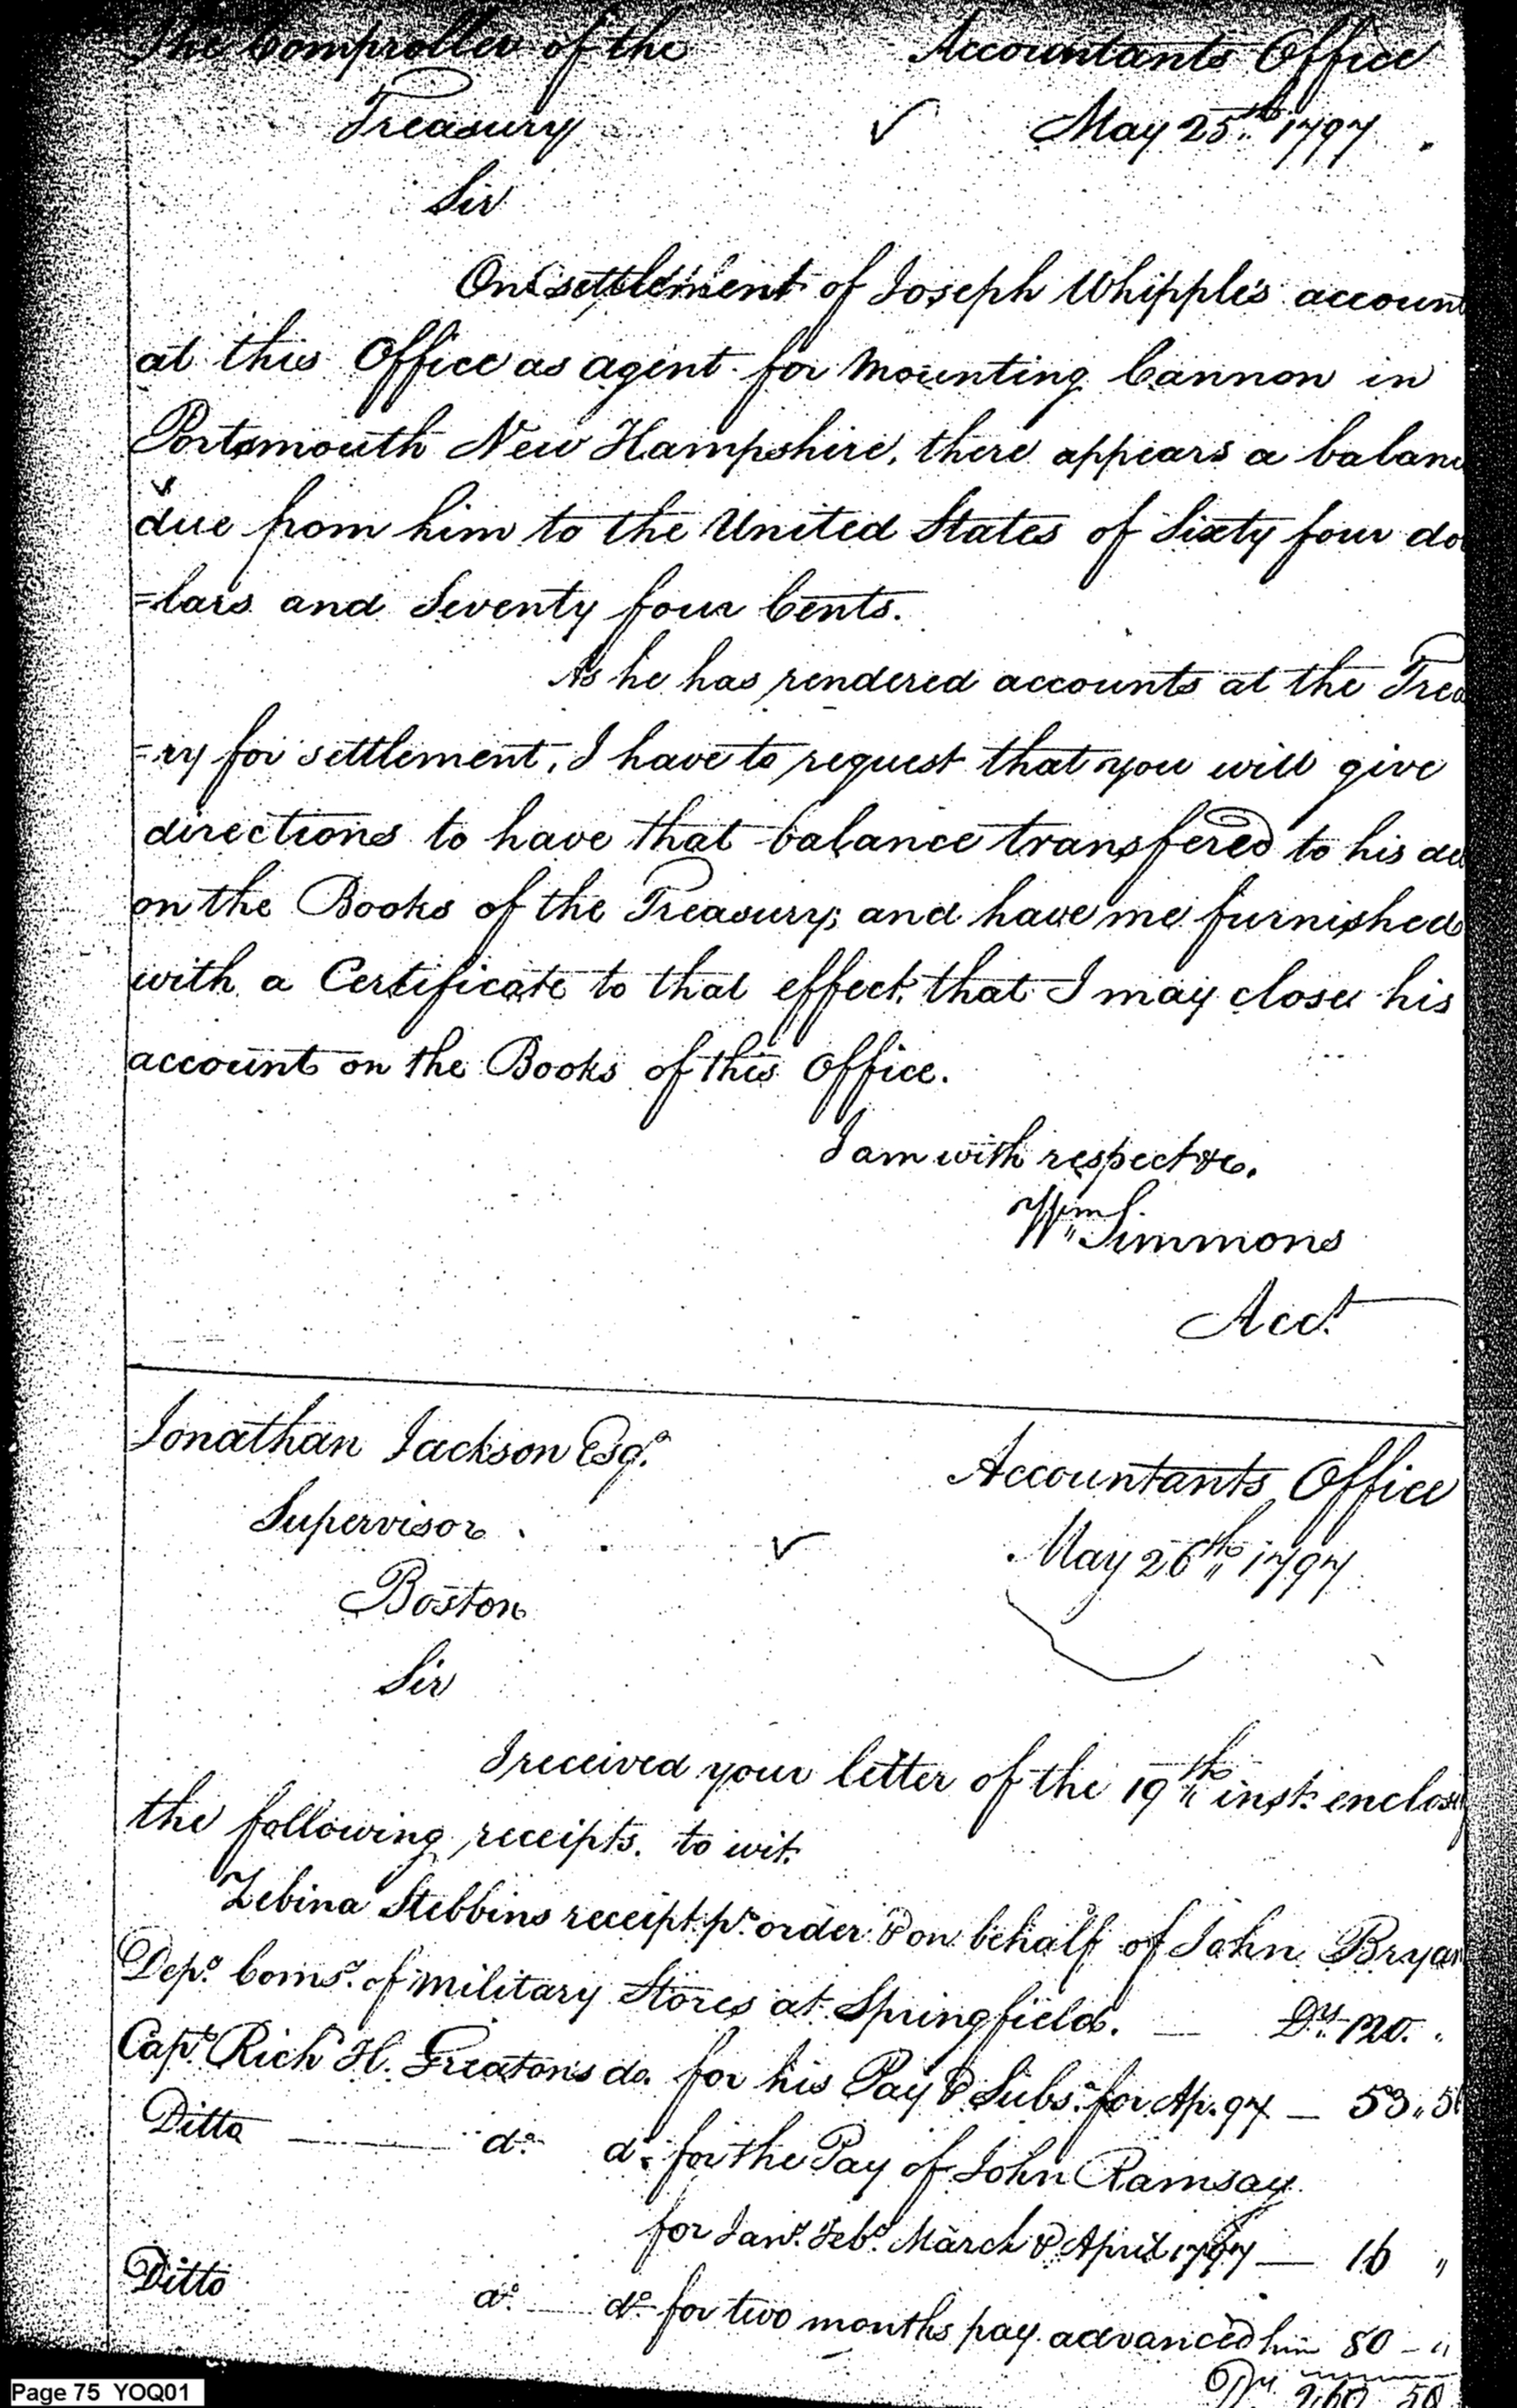 The Comptroller of the Accountants Office
Treasury May 25th 1797
Sir
On settlement of Joseph Whipple's account
at this Office as agent for mounting Cannon in
Portsmouth New Hampshire, there appears a balanc
due from him to the United States of Sixty four do
=lars and Seventy four Cents.
As he has rendered accounts at the Trea
=ry for settlement, I have to request that you will give
directions to have that balance transfered to his
on the Books of the Treasury; and have me furnished
with a Certificate to that effect, that I may close his
account on the Books of this Office.
I am with respect &c.
Wm Simmons
Acct
Jonathan Jackson Esqr. Accountants Office
Supervisor May 26th 1797
Boston
Sir
I received your letter of the 19th inst. enclosi
the following receipts. to wit.
Zebina Stebbins receipt pr order & on behalf of John Bryan
Depy. Coms. of Military Stores at Springfield. — Ds. 120.
Capt. Rich H. Greaton's do. for his Pay & Subs. for Ap. 97 — 53,,5
Ditto — do. do. for the Pay of John Ramsay
for Jany. Feby. March & April 1797 — 16 "
Ditto do. — do. for two months pay advanced him 80 — "
Ds. 269 50
Page 75 YOQ01